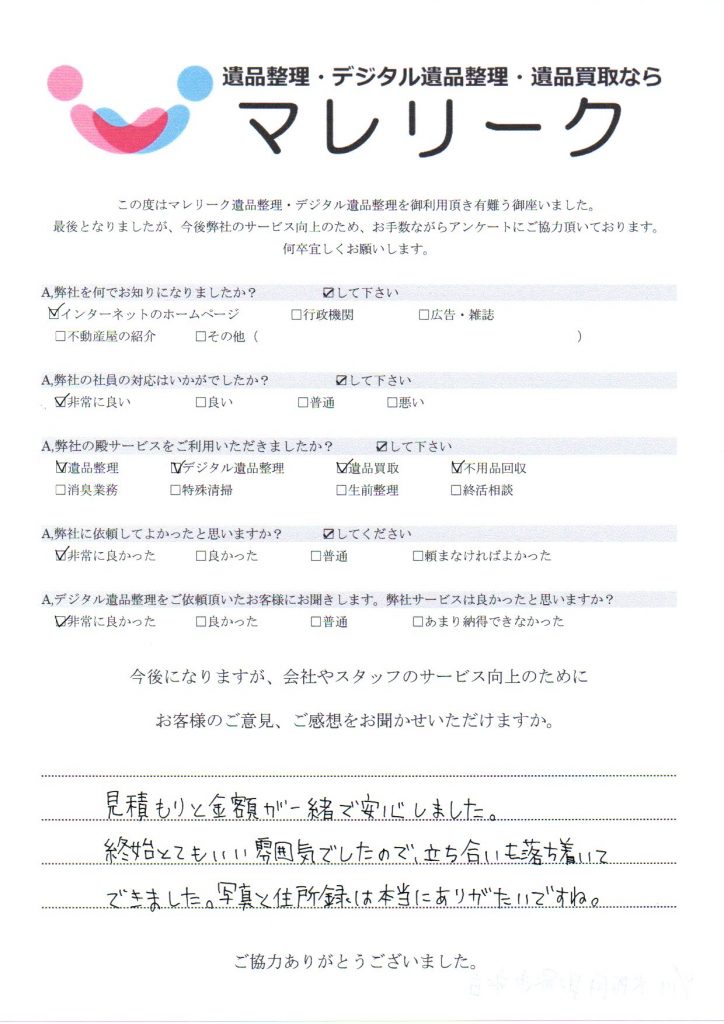 遺品整理・デジタル遺品整理・遺品買取なら
マレリーク
この度はマレリーク遺品整理・デジタル遺品整理を御利用頂き有難う御座いました。
最後となりましたが、今後弊社のサービス向上のため、お手数ながらアンケートにご協力頂いております。
何卒宜しくお願いします。
A,弊社を何でお知りになりましたか？ ☑して下さい
☑インターネットのホームページ □行政機関 □広告・雑誌
□不動産屋の紹介 □その他（ ）
A,弊社の社員の対応はいかがでしたか？ ☑して下さい
☑非常に良い □良い □普通 □悪い
A,弊社の殿サービスをご利用いただきましたか？ ☑して下さい
☑遺品整理 ☑デジタル遺品整理 ☑遺品買取 ☑不用品回収
□消臭業務 □特殊清掃 □生前整理 □終活相談
A,弊社に依頼してよかったと思いますか？ ☑してください
☑非常に良かった □良かった □普通 □頼まなければよかった
A,デジタル遺品整理をご依頼頂いたお客様にお聞きします。弊社サービスは良かったと思いますか？
☑非常に良かった □良かった □普通 □あまり納得できなかった
今後になりますが、会社やスタッフのサービス向上のために
お客様のご意見、ご感想をお聞かせいただけますか。
見積もりと金額が一緒で安心しました。
終始とてもいい雰囲気でしたので、立ち合いも落ち着いて
できました。写真と住所録は本当にありがたいですね。
ご協力ありがとうございました。